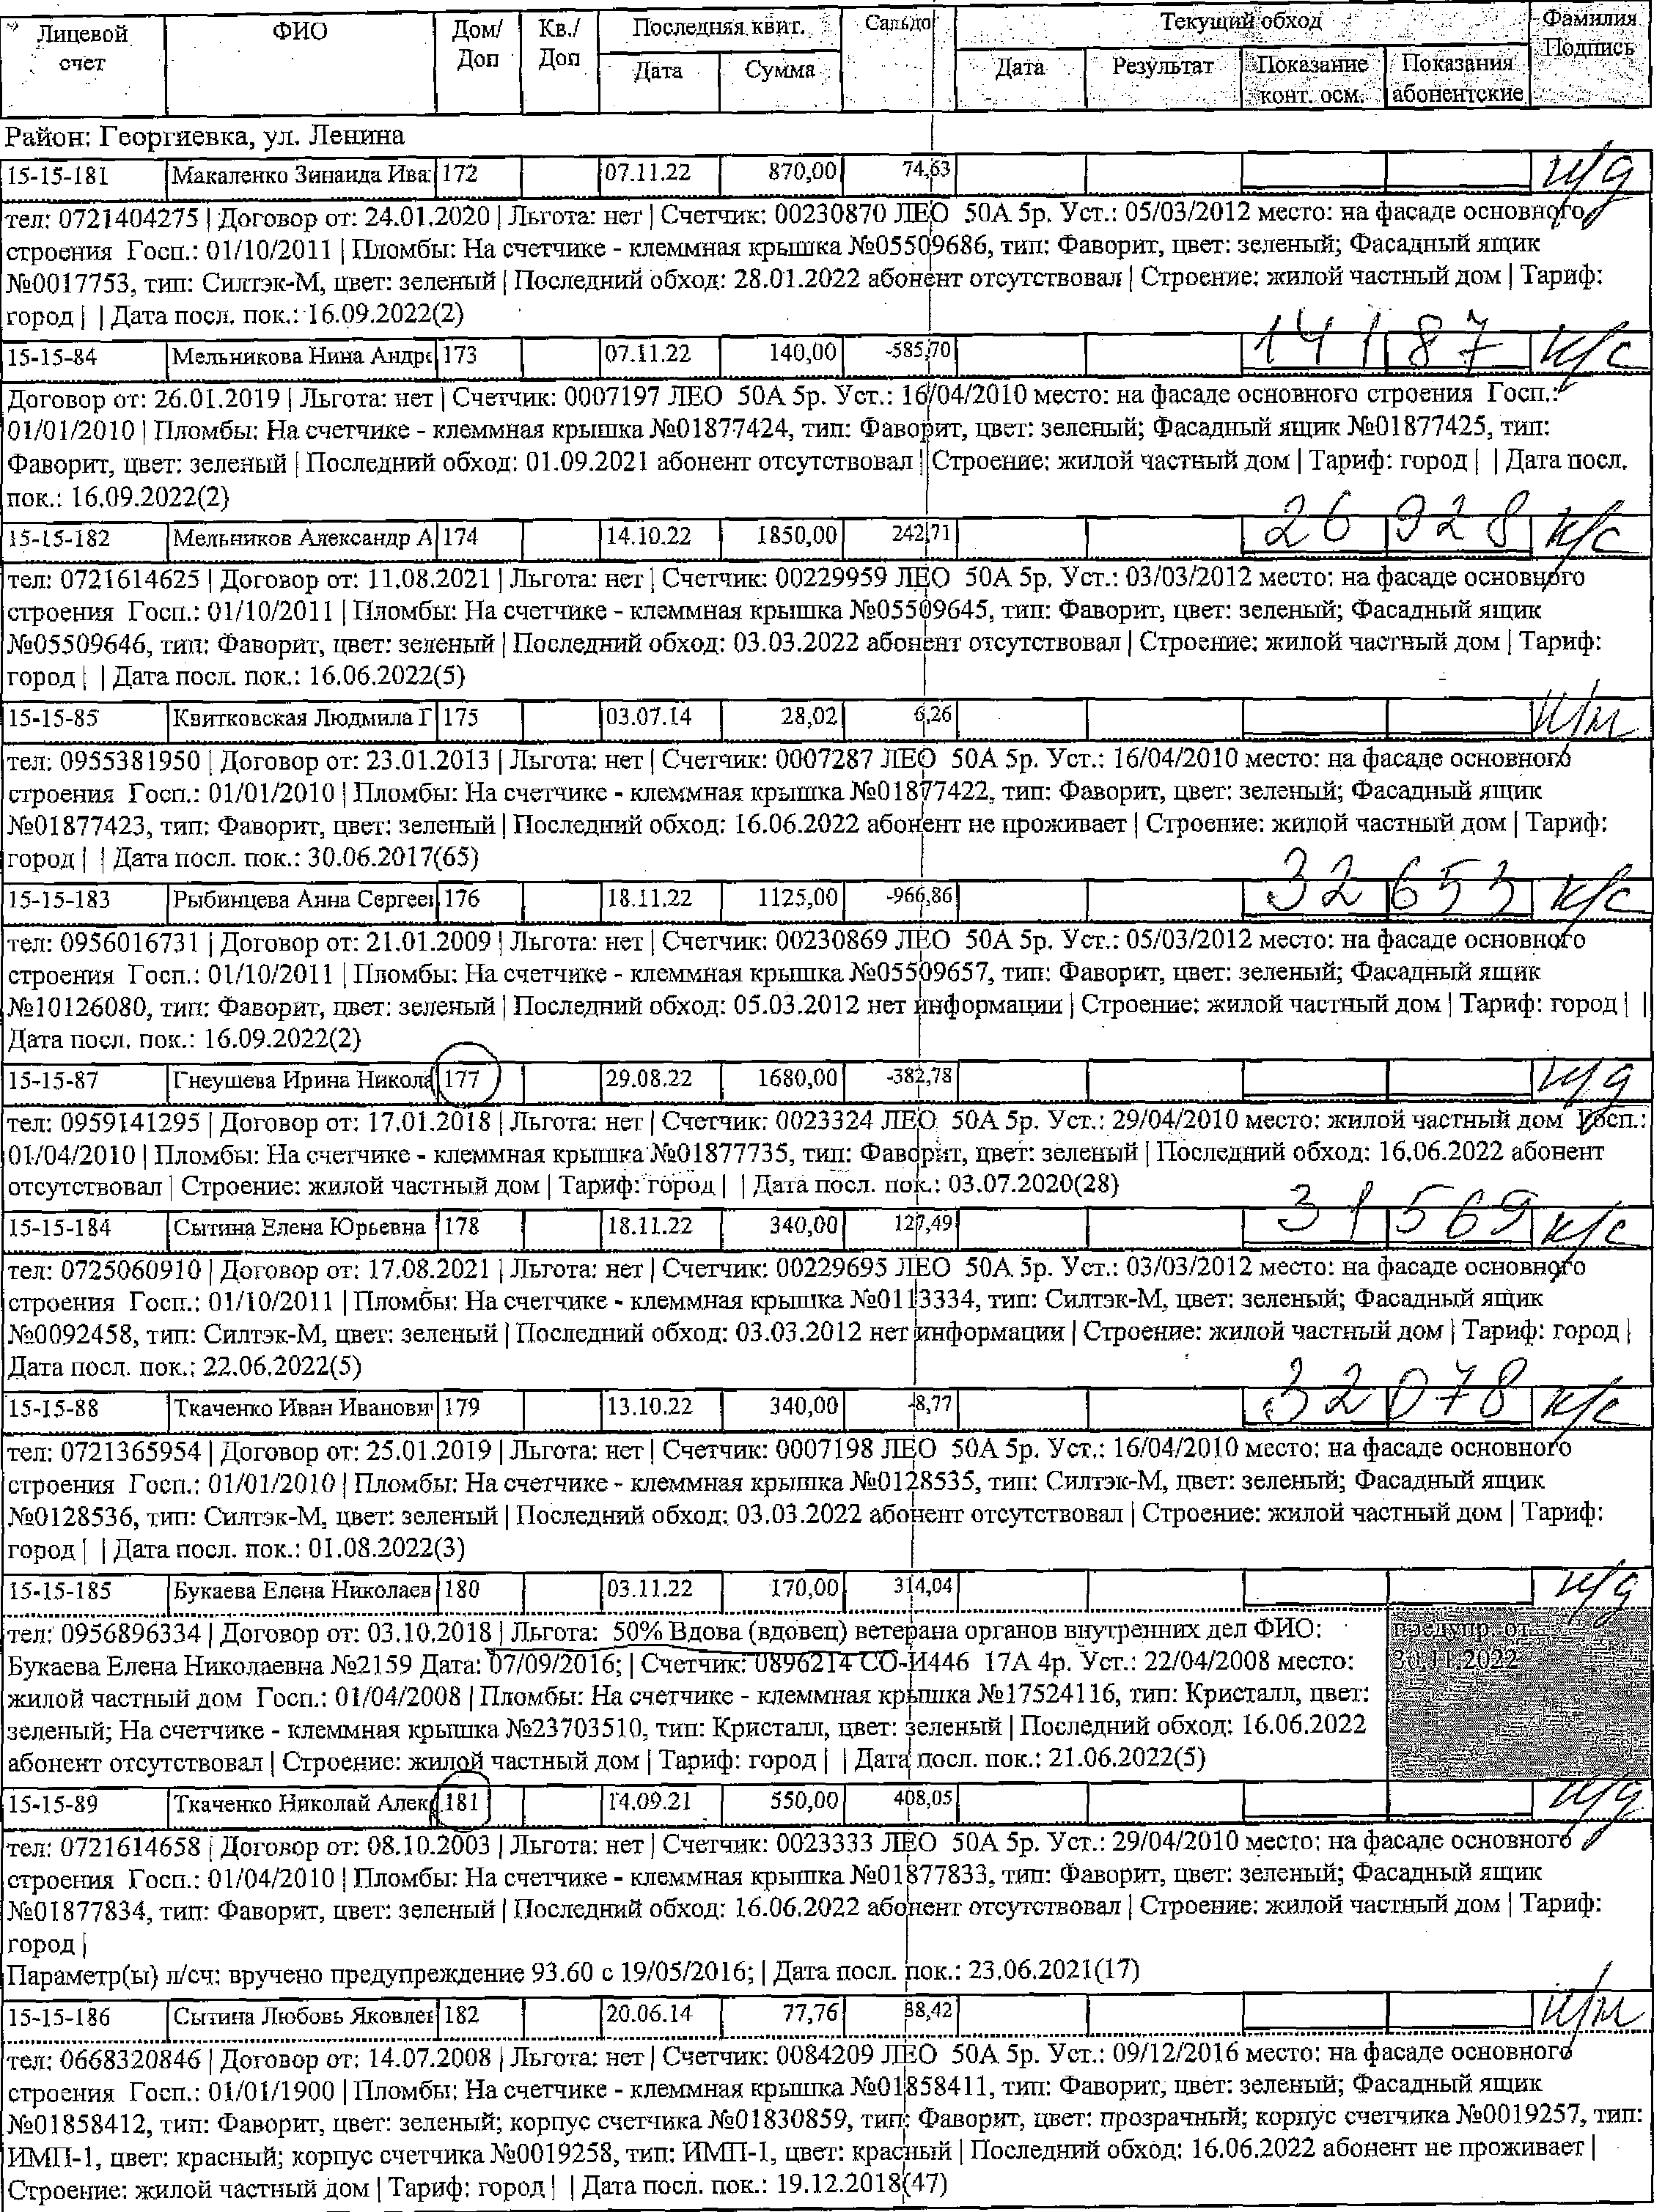 Лицевой счет ФИО Дом/Доп Кв./Доп Последняя квит. Сальдо Текущий обход Фамилия Подпись
Дата Сумма Дата Результат Показание конт. осм. Показания абонентские
Район: Георгиевка, ул. Ленина
15-15-181 Макаленко Зинаида Ива 172 07.11.22 870,00 74,63 н/д
тел: 0721404275 | Договор от: 24.01.2020 | Льгота: нет | Счетчик: 00230870 ЛЕО 50А 5р. Уст.: 05/03/2012 место: на фасаде основного
строения Госп.: 01/10/2011 | Пломбы: На счетчике - клеммная крышка №05509686, тип: Фаворит, цвет: зеленый; Фасадный ящик
№0017753, тип: Силтэк-М, цвет: зеленый | Последний обход: 28.01.2022 абонент отсутствовал | Строение: жилой частный дом | Тариф:
город | | Дата посл. пок.: 16.09.2022(2)
15-15-84 Мельникова Нина Андре 173 07.11.22 140,00 -585,70 14187 к/с
Договор от: 26.01.2019 | Льгота: нет | Счетчик: 0007197 ЛЕО 50А 5р. Уст.: 16/04/2010 место: на фасаде основного строения Госп.:
01/01/2010 | Пломбы: На счетчике - клеммная крышка №01877424, тип: Фаворит, цвет: зеленый; Фасадный ящик №01877425, тип:
Фаворит, цвет: зеленый | Последний обход: 01.09.2021 абонент отсутствовал | Строение: жилой частный дом | Тариф: город | | Дата посл.
пок.: 16.09.2022(2)
15-15-182 Мельников Александр А 174 14.10.22 1850,00 242,71 26928 к/с
тел: 0721614625 | Договор от: 11.08.2021 | Льгота: нет | Счетчик: 00229959 ЛЕО 50А 5р. Уст.: 03/03/2012 место: на фасаде основного
строения Госп.: 01/10/2011 | Пломбы: На счетчике - клеммная крышка №05509645, тип: Фаворит, цвет: зеленый; Фасадный ящик
№05509646, тип: Фаворит, цвет: зеленый | Последний обход: 03.03.2022 абонент отсутствовал | Строение: жилой частный дом | Тариф:
город | | Дата посл. пок.: 16.06.2022(5)
15-15-85 Квитковская Людмила Г 175 03.07.14 28,02 6,26 н/м
тел: 0955381950 | Договор от: 23.01.2013 | Льгота: нет | Счетчик: 0007287 ЛЕО 50А 5р. Уст.: 16/04/2010 место: на фасаде основного
строения Госп.: 01/01/2010 | Пломбы: На счетчике - клеммная крышка №01877422, тип: Фаворит, цвет: зеленый; Фасадный ящик
№01877423, тип: Фаворит, цвет: зеленый | Последний обход: 16.06.2022 абонент не проживает | Строение: жилой частный дом | Тариф:
город | | Дата посл. пок.: 30.06.2017(65)
15-15-183 Рыбинцева Анна Сергее 176 18.11.22 1125,00 -966,86 32653 к/с
тел: 0956016731 | Договор от: 21.01.2009 | Льгота: нет | Счетчик: 00230869 ЛЕО 50А 5р. Уст.: 05/03/2012 место: на фасаде основного
строения Госп.: 01/10/2011 | Пломбы: На счетчике - клеммная крышка №05509657, тип: Фаворит, цвет: зеленый; Фасадный ящик
№10126080, тип: Фаворит, цвет: зеленый | Последний обход: 05.03.2012 нет информации | Строение: жилой частный дом | Тариф: город | |
Дата посл. пок.: 16.09.2022(2)
15-15-87 Гнеушева Ирина Никола 177 29.08.22 1680,00 -382,78 н/д
тел: 0959141295 | Договор от: 17.01.2018 | Льгота: нет | Счетчик: 0023324 ЛЕО 50А 5р. Уст.: 29/04/2010 место: жилой частный дом Госп.:
01/04/2010 | Пломбы: На счетчике - клеммная крышка №01877735, тип: Фаворит, цвет: зеленый | Последний обход: 16.06.2022 абонент
отсутствовал | Строение: жилой частный дом | Тариф: город | | Дата посл. пок.: 03.07.2020(28)
15-15-184 Сытина Елена Юрьевна 178 18.11.22 340,00 127,49 31569 к/с
тел: 0725060910 | Договор от: 17.08.2021 | Льгота: нет | Счетчик: 00229695 ЛЕО 50А 5р. Уст.: 03/03/2012 место: на фасаде основного
строения Госп.: 01/10/2011 | Пломбы: На счетчике - клеммная крышка №0113334, тип: Силтэк-М, цвет: зеленый; Фасадный ящик
№0092458, тип: Силтэк-М, цвет: зеленый | Последний обход: 03.03.2012 нет информации | Строение: жилой частный дом | Тариф: город |
Дата посл. пок.: 22.06.2022(5)
15-15-88 Ткаченко Иван Иванови 179 13.10.22 340,00 -8,77 32078 к/с
тел: 0721365954 | Договор от: 25.01.2019 | Льгота: нет | Счетчик: 0007198 ЛЕО 50А 5р. Уст.: 16/04/2010 место: на фасаде основного
строения Госп.: 01/01/2010 | Пломбы: На счетчике - клеммная крышка №0128535, тип: Силтэк-М, цвет: зеленый; Фасадный ящик
№0128536, тип: Силтэк-М, цвет: зеленый | Последний обход: 03.03.2022 абонент отсутствовал | Строение: жилой частный дом | Тариф:
город | | Дата посл. пок.: 01.08.2022(3)
15-15-185 Букаева Елена Николаев 180 03.11.22 170,00 314,04 н/д
тел: 0956896334 | Договор от: 03.10.2018 | Льгота: 50% Вдова (вдовец) ветерана органов внутренних дел ФИО: предупр. от
Букаева Елена Николаевна №2159 Дата: 07/09/2016; | Счетчик: 0896214 СО-И446 17А 4р. Уст.: 22/04/2008 место: 30.11.2022
жилой частный дом Госп.: 01/04/2008 | Пломбы: На счетчике - клеммная крышка №17524116, тип: Кристалл, цвет:
зеленый; На счетчике - клеммная крышка №23703510, тип: Кристалл, цвет: зеленый | Последний обход: 16.06.2022
абонент отсутствовал | Строение: жилой частный дом | Тариф: город | | Дата посл. пок.: 21.06.2022(5)
15-15-89 Ткаченко Николай Алек 181 14.09.21 550,00 408,05 н/д
тел: 0721614658 | Договор от: 08.10.2003 | Льгота: нет | Счетчик: 0023333 ЛЕО 50А 5р. Уст.: 29/04/2010 место: на фасаде основного
строения Госп.: 01/04/2010 | Пломбы: На счетчике - клеммная крышка №01877833, тип: Фаворит, цвет: зеленый; Фасадный ящик
№01877834, тип: Фаворит, цвет: зеленый | Последний обход: 16.06.2022 абонент отсутствовал | Строение: жилой частный дом | Тариф:
город |
Параметр(ы) л/сч: вручено предупреждение 93.60 с 19/05/2016; | Дата посл. пок.: 23.06.2021(17)
15-15-186 Сытина Любовь Яковле 182 20.06.14 77,76 38,42 н/м
тел: 0668320846 | Договор от: 14.07.2008 | Льгота: нет | Счетчик: 0084209 ЛЕО 50А 5р. Уст.: 09/12/2016 место: на фасаде основного
строения Госп.: 01/01/1900 | Пломбы: На счетчике - клеммная крышка №01858411, тип: Фаворит, цвет: зеленый; Фасадный ящик
№01858412, тип: Фаворит, цвет: зеленый; корпус счетчика №01830859, тип: Фаворит, цвет: прозрачный; корпус счетчика №0019257, тип:
ИМП-1, цвет: красный; корпус счетчика №0019258, тип: ИМП-1, цвет: красный | Последний обход: 16.06.2022 абонент не проживает |
Строение: жилой частный дом | Тариф: город | | Дата посл. пок.: 19.12.2018(47)